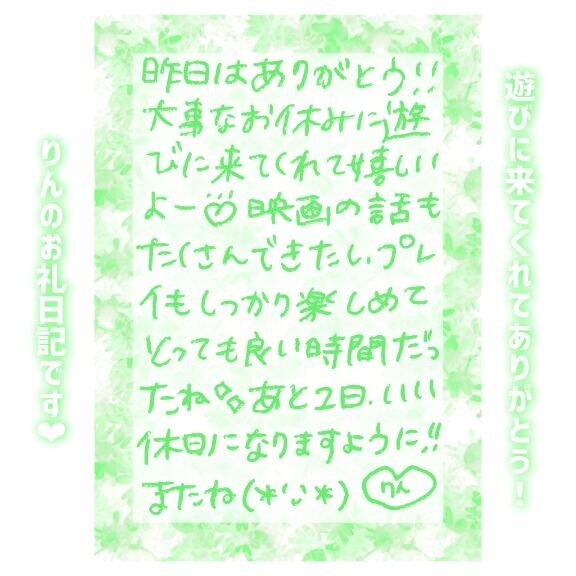 遊びに来てくれてありがとう！
昨日はありがとう!!
大事なお休みに遊
びに来てくれて嬉しい
よー♡映画の話も
たくさんできたし、プレ
イもしっかり楽しめて
とっても良い時間だっ
たね あと2日、いい
休日になりますように!!
またね(*'ᴗ'*) りん
りんのお礼日記です❤